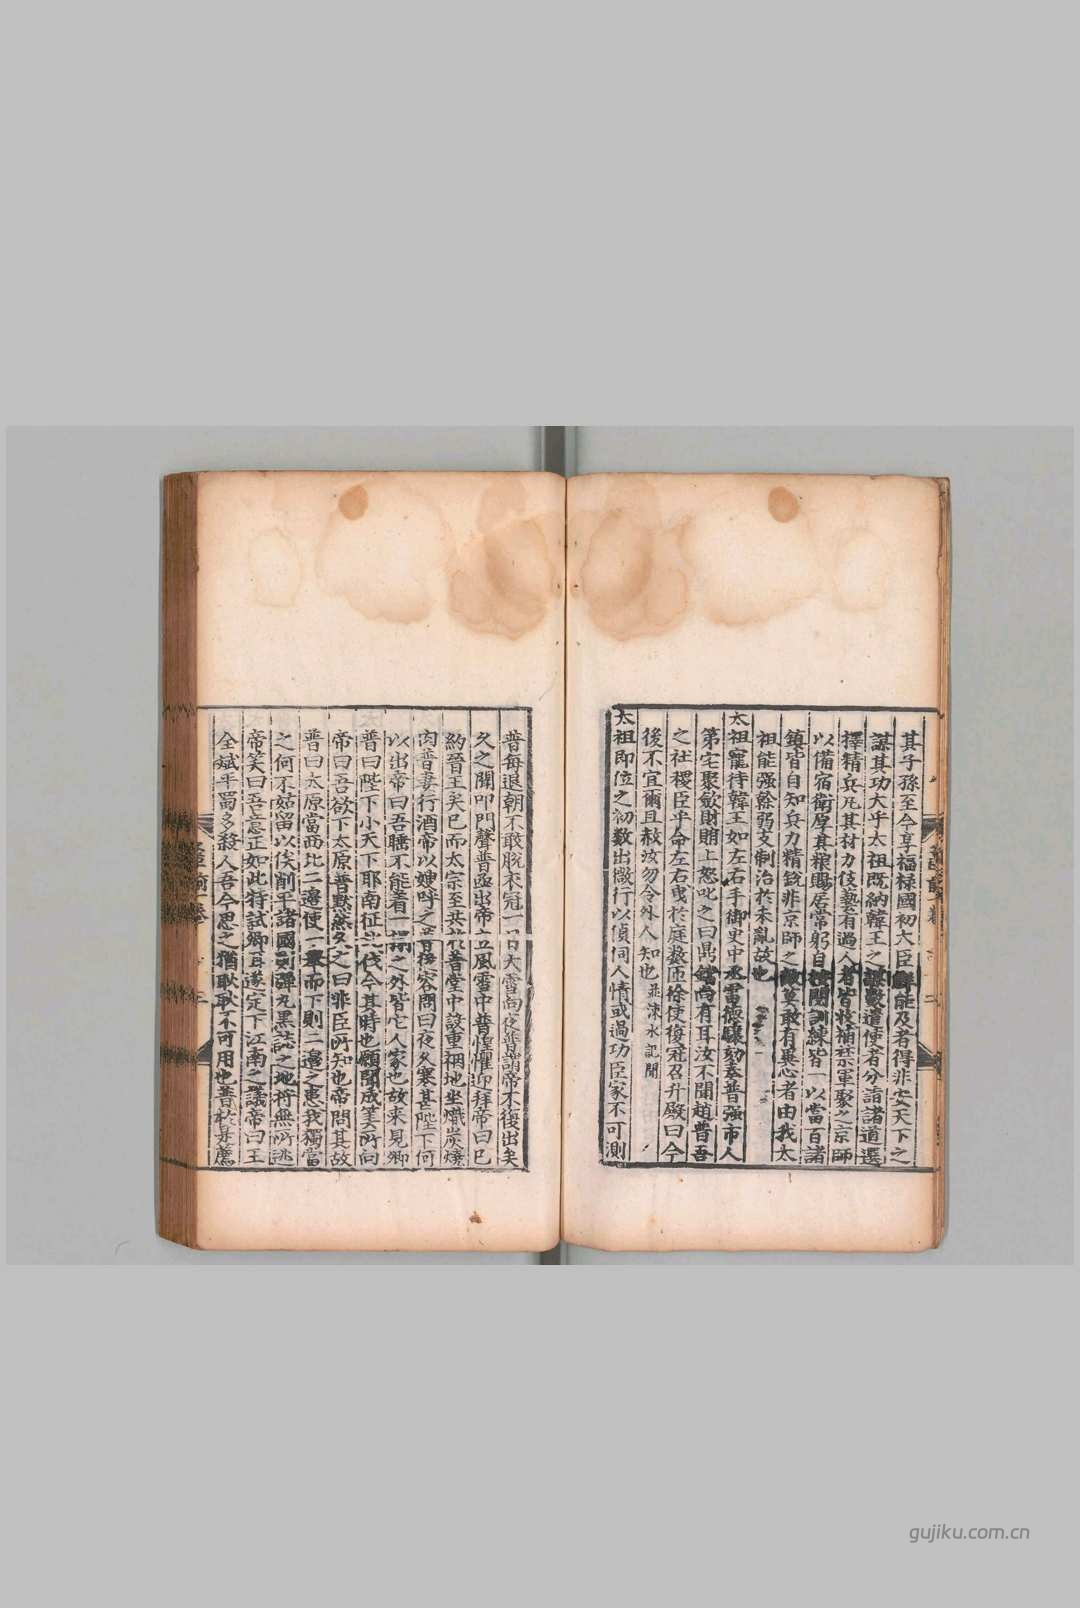 其子孫至今享福祿國初大臣鮮能及者得非安天下之
謀其功大乎太祖既納韓王之謀數遣使者分詣諸道選
擇精兵凡其材力伎藝有過人者皆收補禁軍聚之京師
以備宿衛厚其粮賜居常躬自按閱訓練皆一以當百諸
鎮皆自知兵力精銳非京師之敵莫敢有異心者由我太
祖能强榦弱支制治於未亂故也
太祖寵待韓王如左右手御史中丞雷德驤劾奏普强市人
第宅聚斂財賄上怒叱之曰鼎鐺尚有耳汝不聞趙普吾
之社稷臣乎命左右曳於庭數匝徐使復冠召升殿曰今
後不宜爾且赦汝勿令外人知也並涑水記聞
太祖即位之初數出微行以偵伺人情或過功臣家不可測
普每退朝不敢脫衣冠一日大雪向夜普謂帝不復出矣
久之聞叩門聲普亟出帝立風雪中普惶懼迎拜帝曰已
約晉王矣已而太宗至共於普堂中設重裀地坐熾炭燒
肉普妻行酒帝以嫂呼之普從容問曰夜久寒甚陛下何
以出帝曰吾睡不能着一榻之外皆它人家也故來見卿
普曰陛下小天下耶南征北伐今其時也願聞成筭所向
帝曰吾欲下太原普默然久之曰非臣所知也帝問其故
普曰太原當西北二邊使一舉而下則二邊之患我獨當
之何不姑留以俟削平諸國則彈丸黑誌之地將無所逃
帝笑曰吾意正如此特試卿耳遂定下江南之議帝曰王
全斌平蜀多殺人吾今思之猶耿耿不可用也普於是薦
gujiku.com.cn